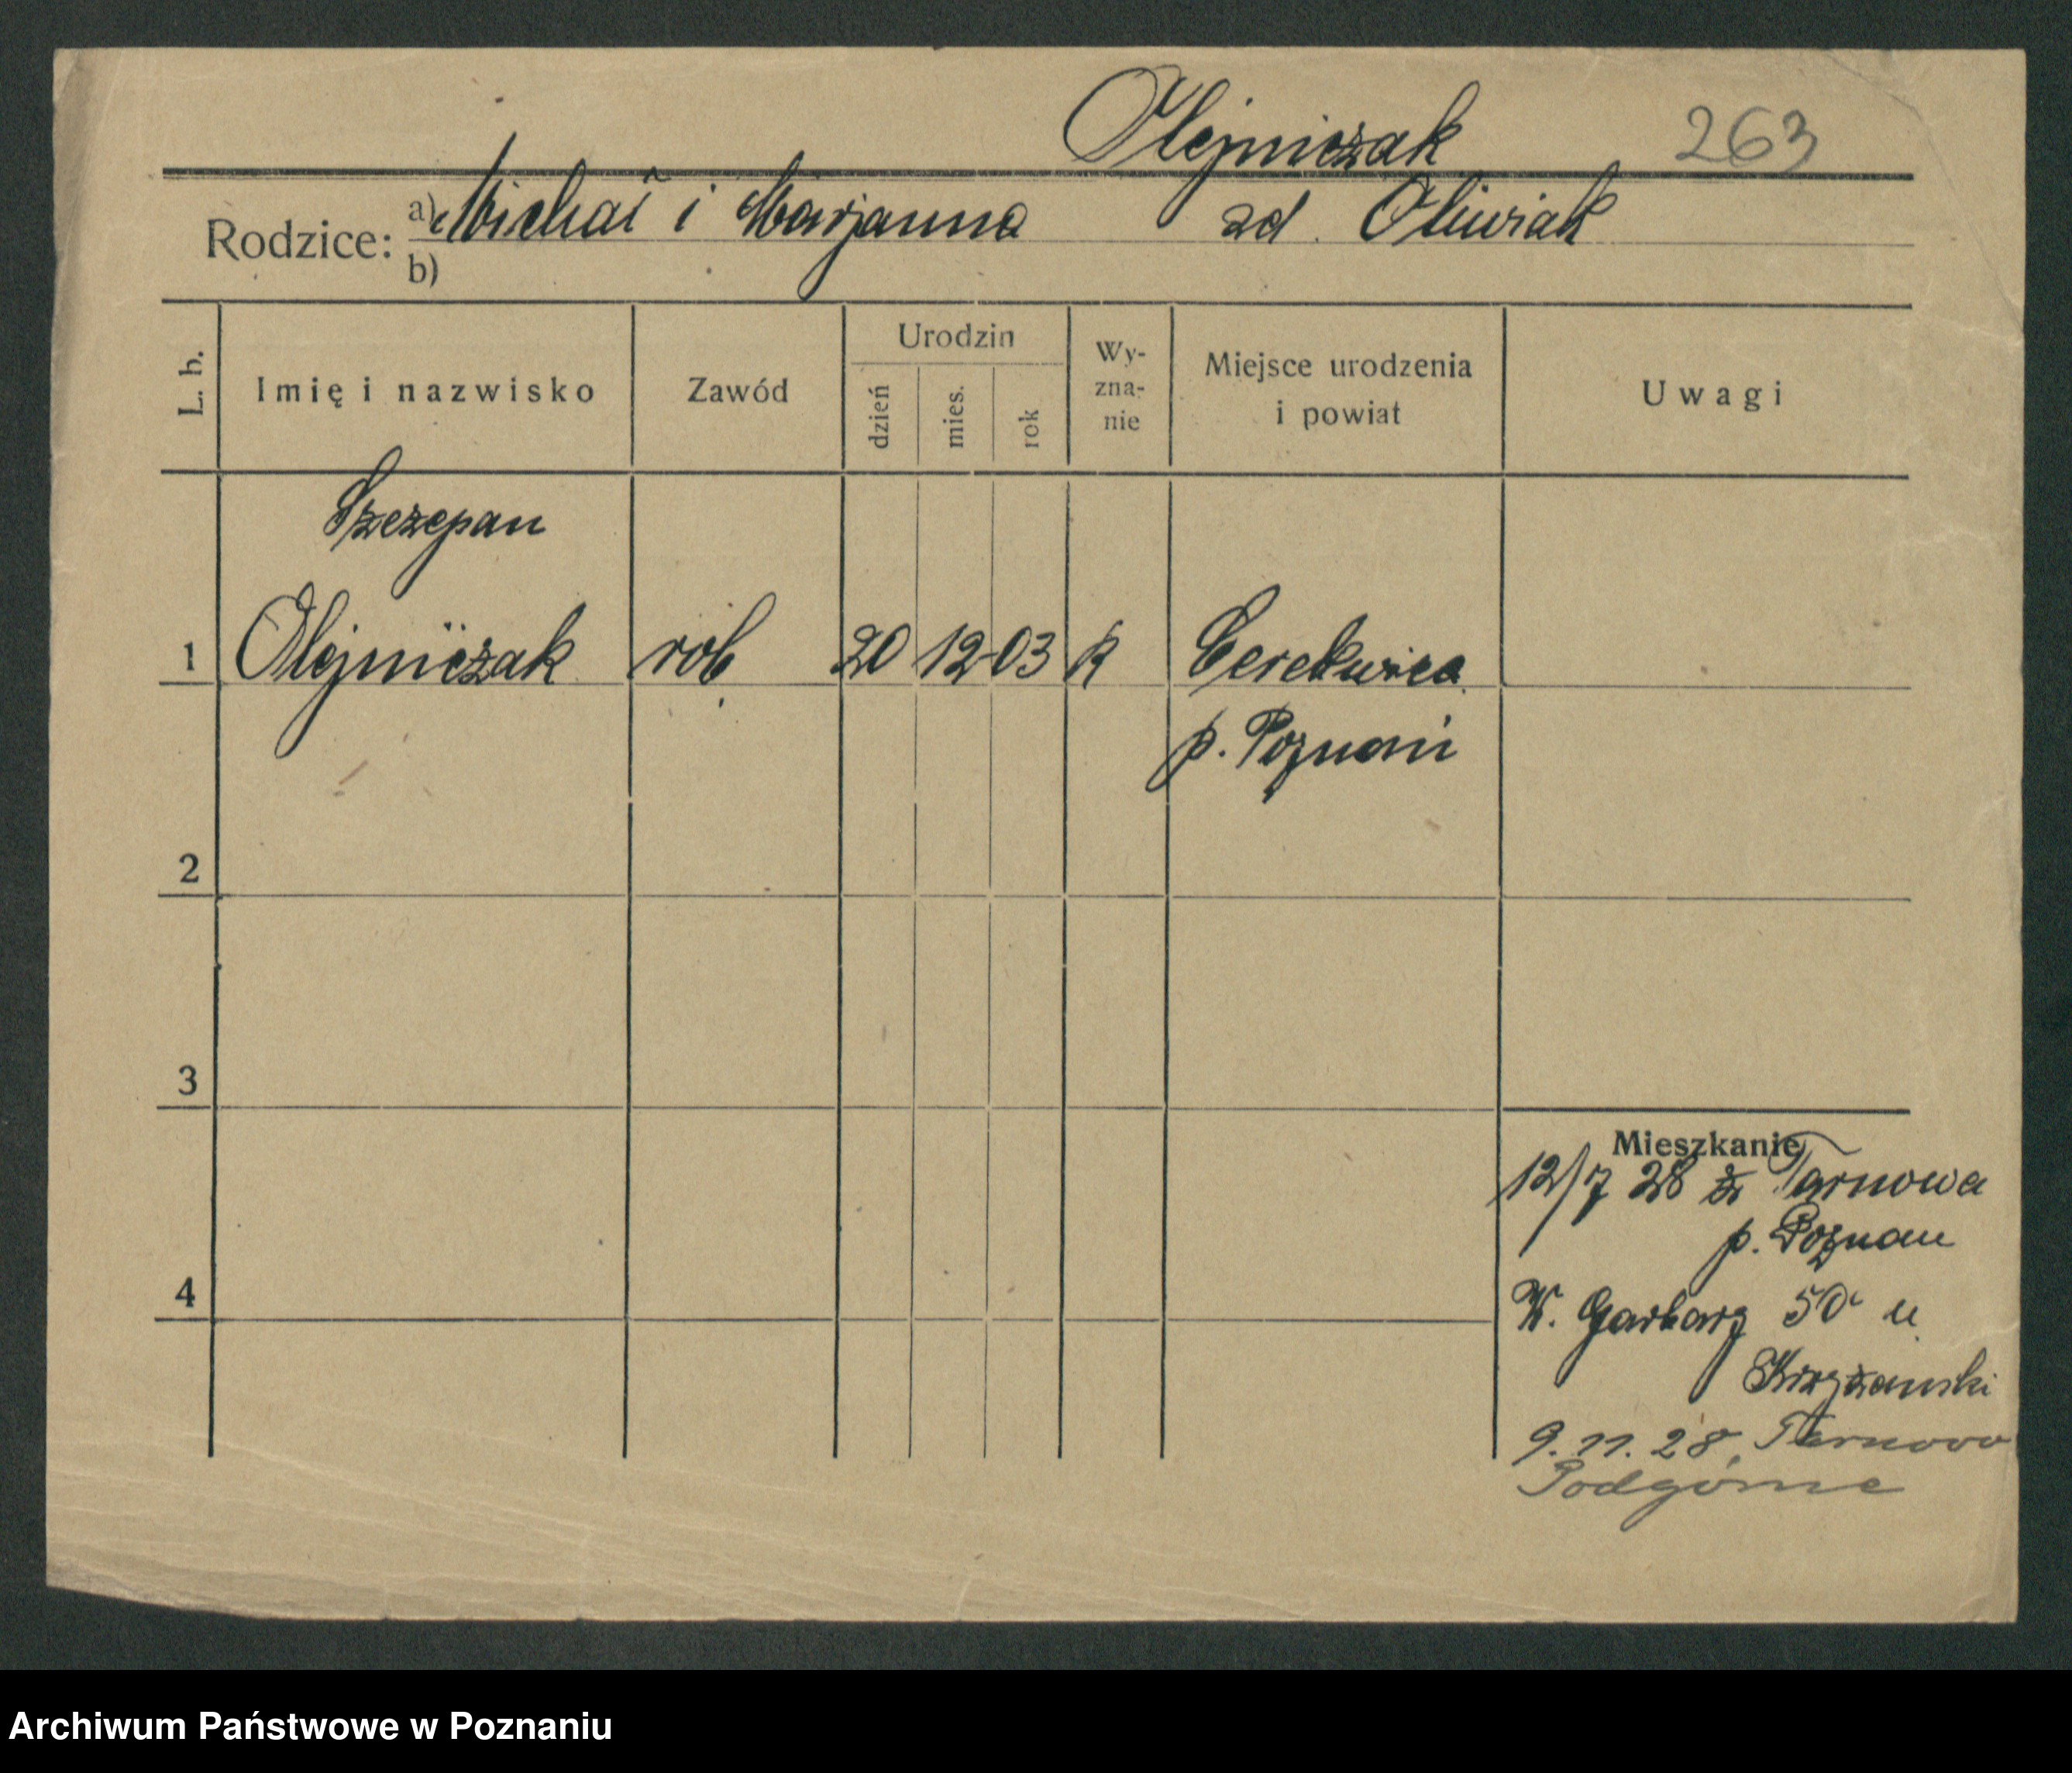 Olejniczak 263
Rodzice: a) Michał i Marjanna zd. Oliwiak
b)
L. b. Imię i nazwisko Zawód Urodzin dzień mies. rok Wy-zna-nie Miejsce urodzenia i powiat Uwagi
Szczepan
1 Olejniczak rob 20 12 03 R Cerekwica
p. Poznań
2
3
Mieszkanie
12/7 28 z Tarnowa
p. Poznan
4
W. Garbary 50 u
Krzyżanski
9.11.28 Tarnowo
Podgórne
Archiwum Państwowe w Poznaniu